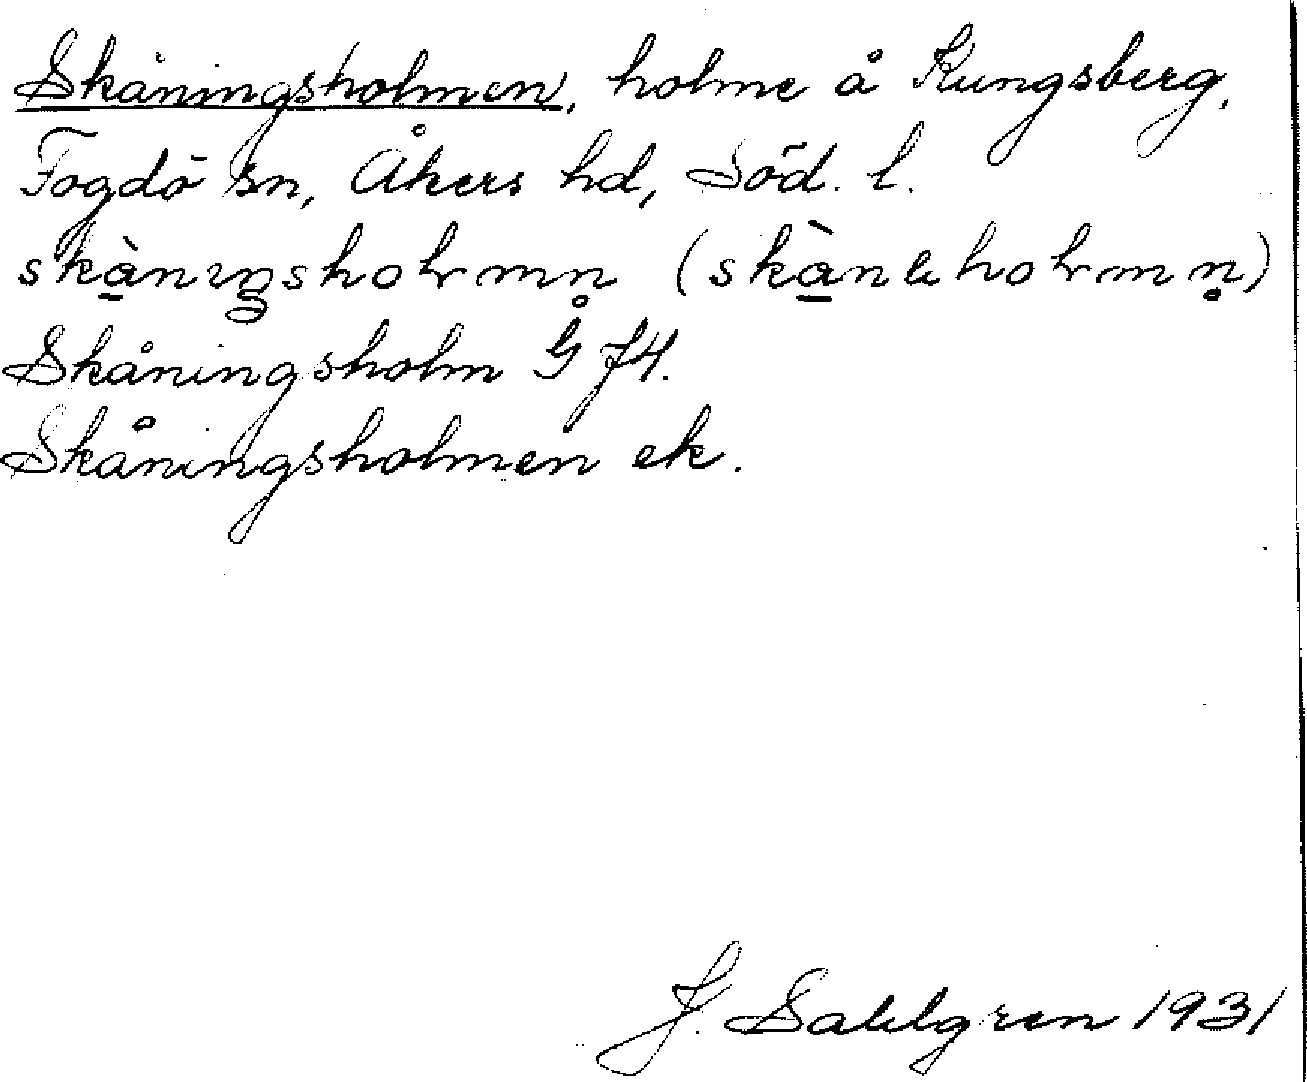 Skåningsholmen, holme å Kungsberg,
Fogdö sn, Åkers hd, Söd. l.
skànıŋsholmn̥ (skàn
Skåningsholm G J4.
Skåningsholmen ek.
J. Sahlgren 1931